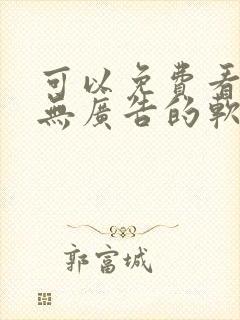 可以免費看
無廣告的軟
郭富城